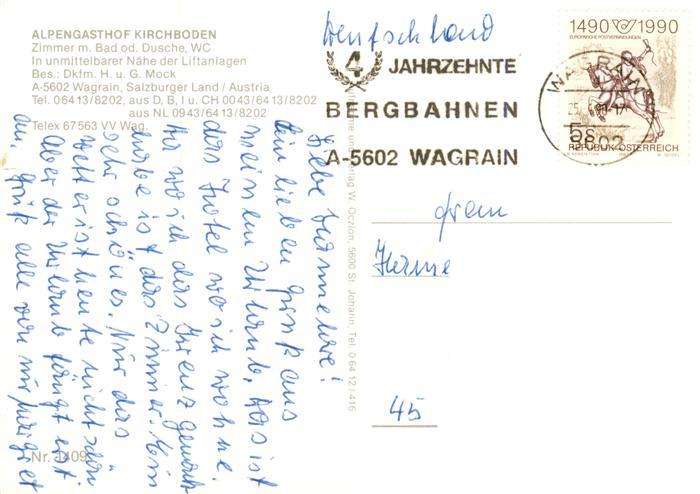 ALPENGASTHOF KIRCHBODEN
Zimmer m. Bad od. Dusche, WC
In unmittelbarer Nähe der Liftanlagen
Bes.: Dkfm. H. u. G. Mock
A-5602 Wagrain, Salzburger Land / Austria
Tel. 06413/8202, aus D, B, I u. CH 0043/6413/8202
aus NL 0943/6413/8202
Telex 67563 VV Wag.
Deutschland
4 JAHRZEHNTE
BERGBAHNEN
A-5602 WAGRAIN
1490 1990
EUROPÄISCHE POSTVERBINDUNGEN
5S
REPUBLIK ÖSTERREICH
WAGRAIN
5602
Liebe
Ein lieben Gruß aus
meinem Urlaub, das ist
das Hotel wo ich wohne.
wo ich das Kreuz gemacht
habe ist das Zimmer. Ein
sehr schönes. Nur das
Wetter ist heute nicht schön
Aber der Urlaub fängt erst
an, Grüß alle von mir
Verlag W. Oczlon, 5600 St. Johann, Tel. 06412/416
Herne
45
Nr. 1409